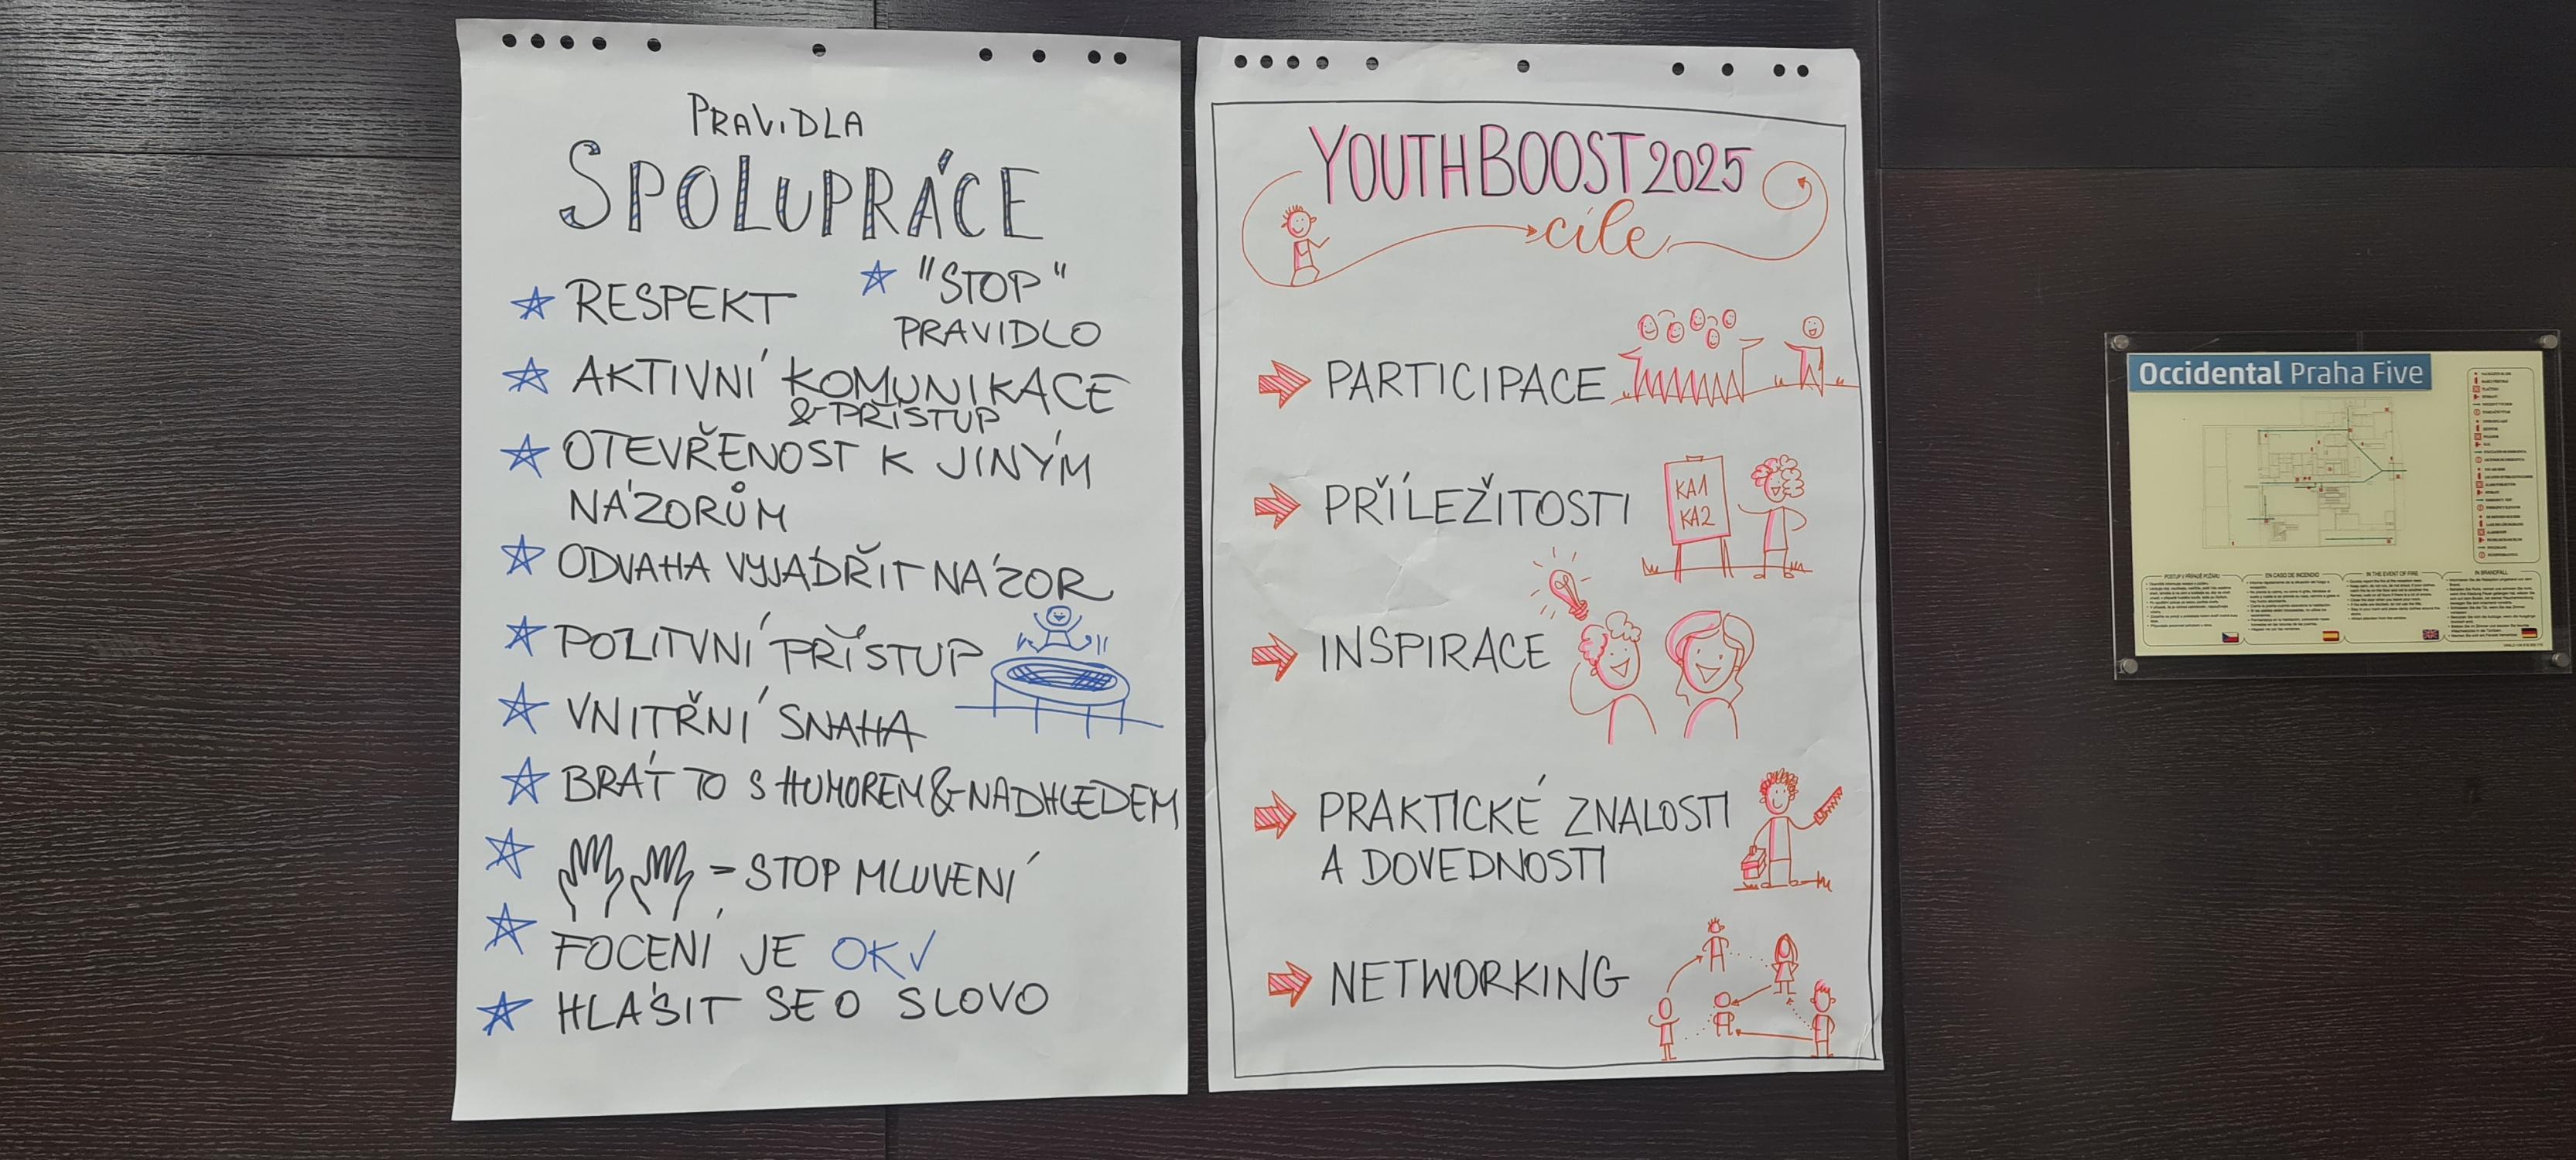 PRAVIDLA
SPOLUPRÁCE
RESPEKT
"STOP"
PRAVIDLO
AKTIVNÍ KOMUNIKACE
& PŘÍSTUP
OTEVŘENOST K JINÝM
NÁZORŮM
ODVAHA VYJÁDŘIT NÁZOR
POZITVNÍ PŘÍSTUP
VNITŘNÍ SNAHA
BRÁT TO S HUMOREM & NADHLEDEM
= STOP MLUVENÍ
FOCENÍ JE OK ✓
HLÁSIT SE O SLOVO
YOUTHBOOST2025
cíle
PARTICIPACE
PŘÍLEŽITOSTI
KA1
KA2
INSPIRACE
PRAKTICKÉ ZNALOSTI
A DOVEDNOSTI
NETWORKING
Occidental Praha Five
POSTUP V PŘÍPADĚ POŽÁRU
EN CASO DE INCENDIO
IN THE EVENT OF FIRE
IN BRANDFALL